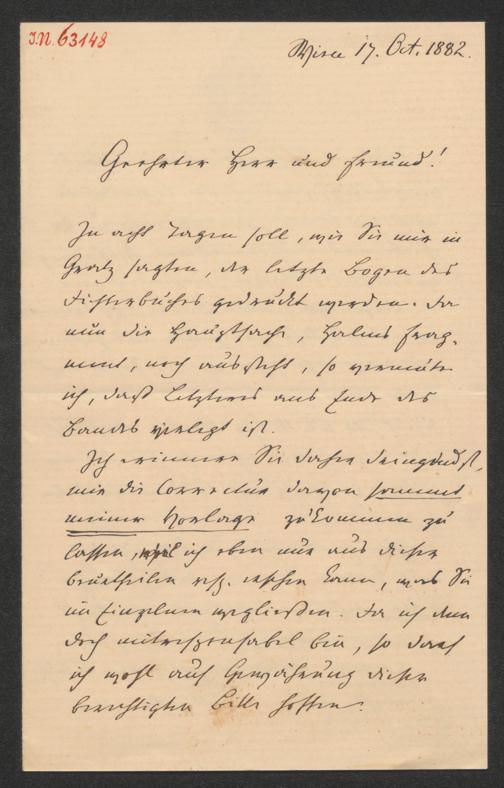 I.N. 63148
Wien 17. Oct. 1882.
Geehrter Herr und Freund!
In acht Tagen soll, wie Sie mir in
Gratz sagten, der letzte Bogen des
Dichterbuches gedruckt werden. Da
nun die Hauptsache, Halms Frag-
ment, noch aussteht, so vermute
ich, daß letzteres ans Ende des
Bandes verlegt ist.
Ich erinnere Sie daher dringendst,
mir die Correctur davon sammt
meiner Vorlage zukommen zu
lassen, weil ich eben nur aus dieser
beurtheilen resp. ersehen kann, was Sie
im Einzelnen wegließen. Da ich denn
doch mitresponsabel bin, so darf
ich wohl auf Gewährung dieser
berechtigten Bitte hoffen.